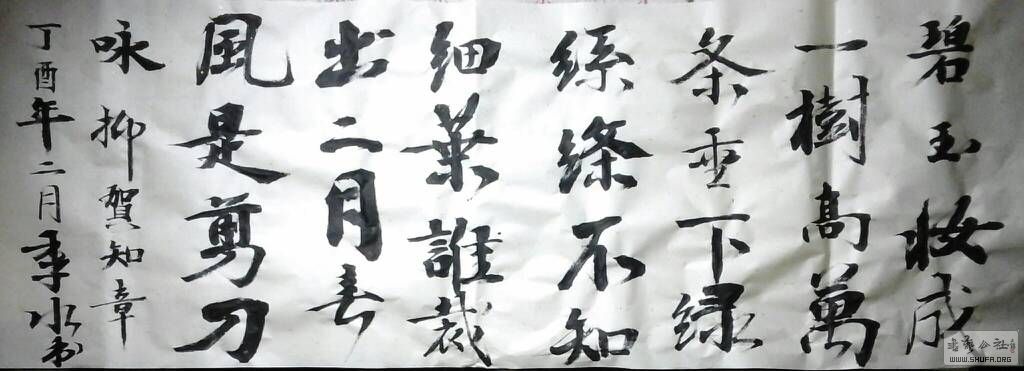 碧玉妆成
一樹高萬
条垂下绿
絲縧不知
細葉誰裁
出二月春
風是剪刀
咏抑賀知章
丁酉年二月季水书
書法公社
WWW.SHUFA.ORG